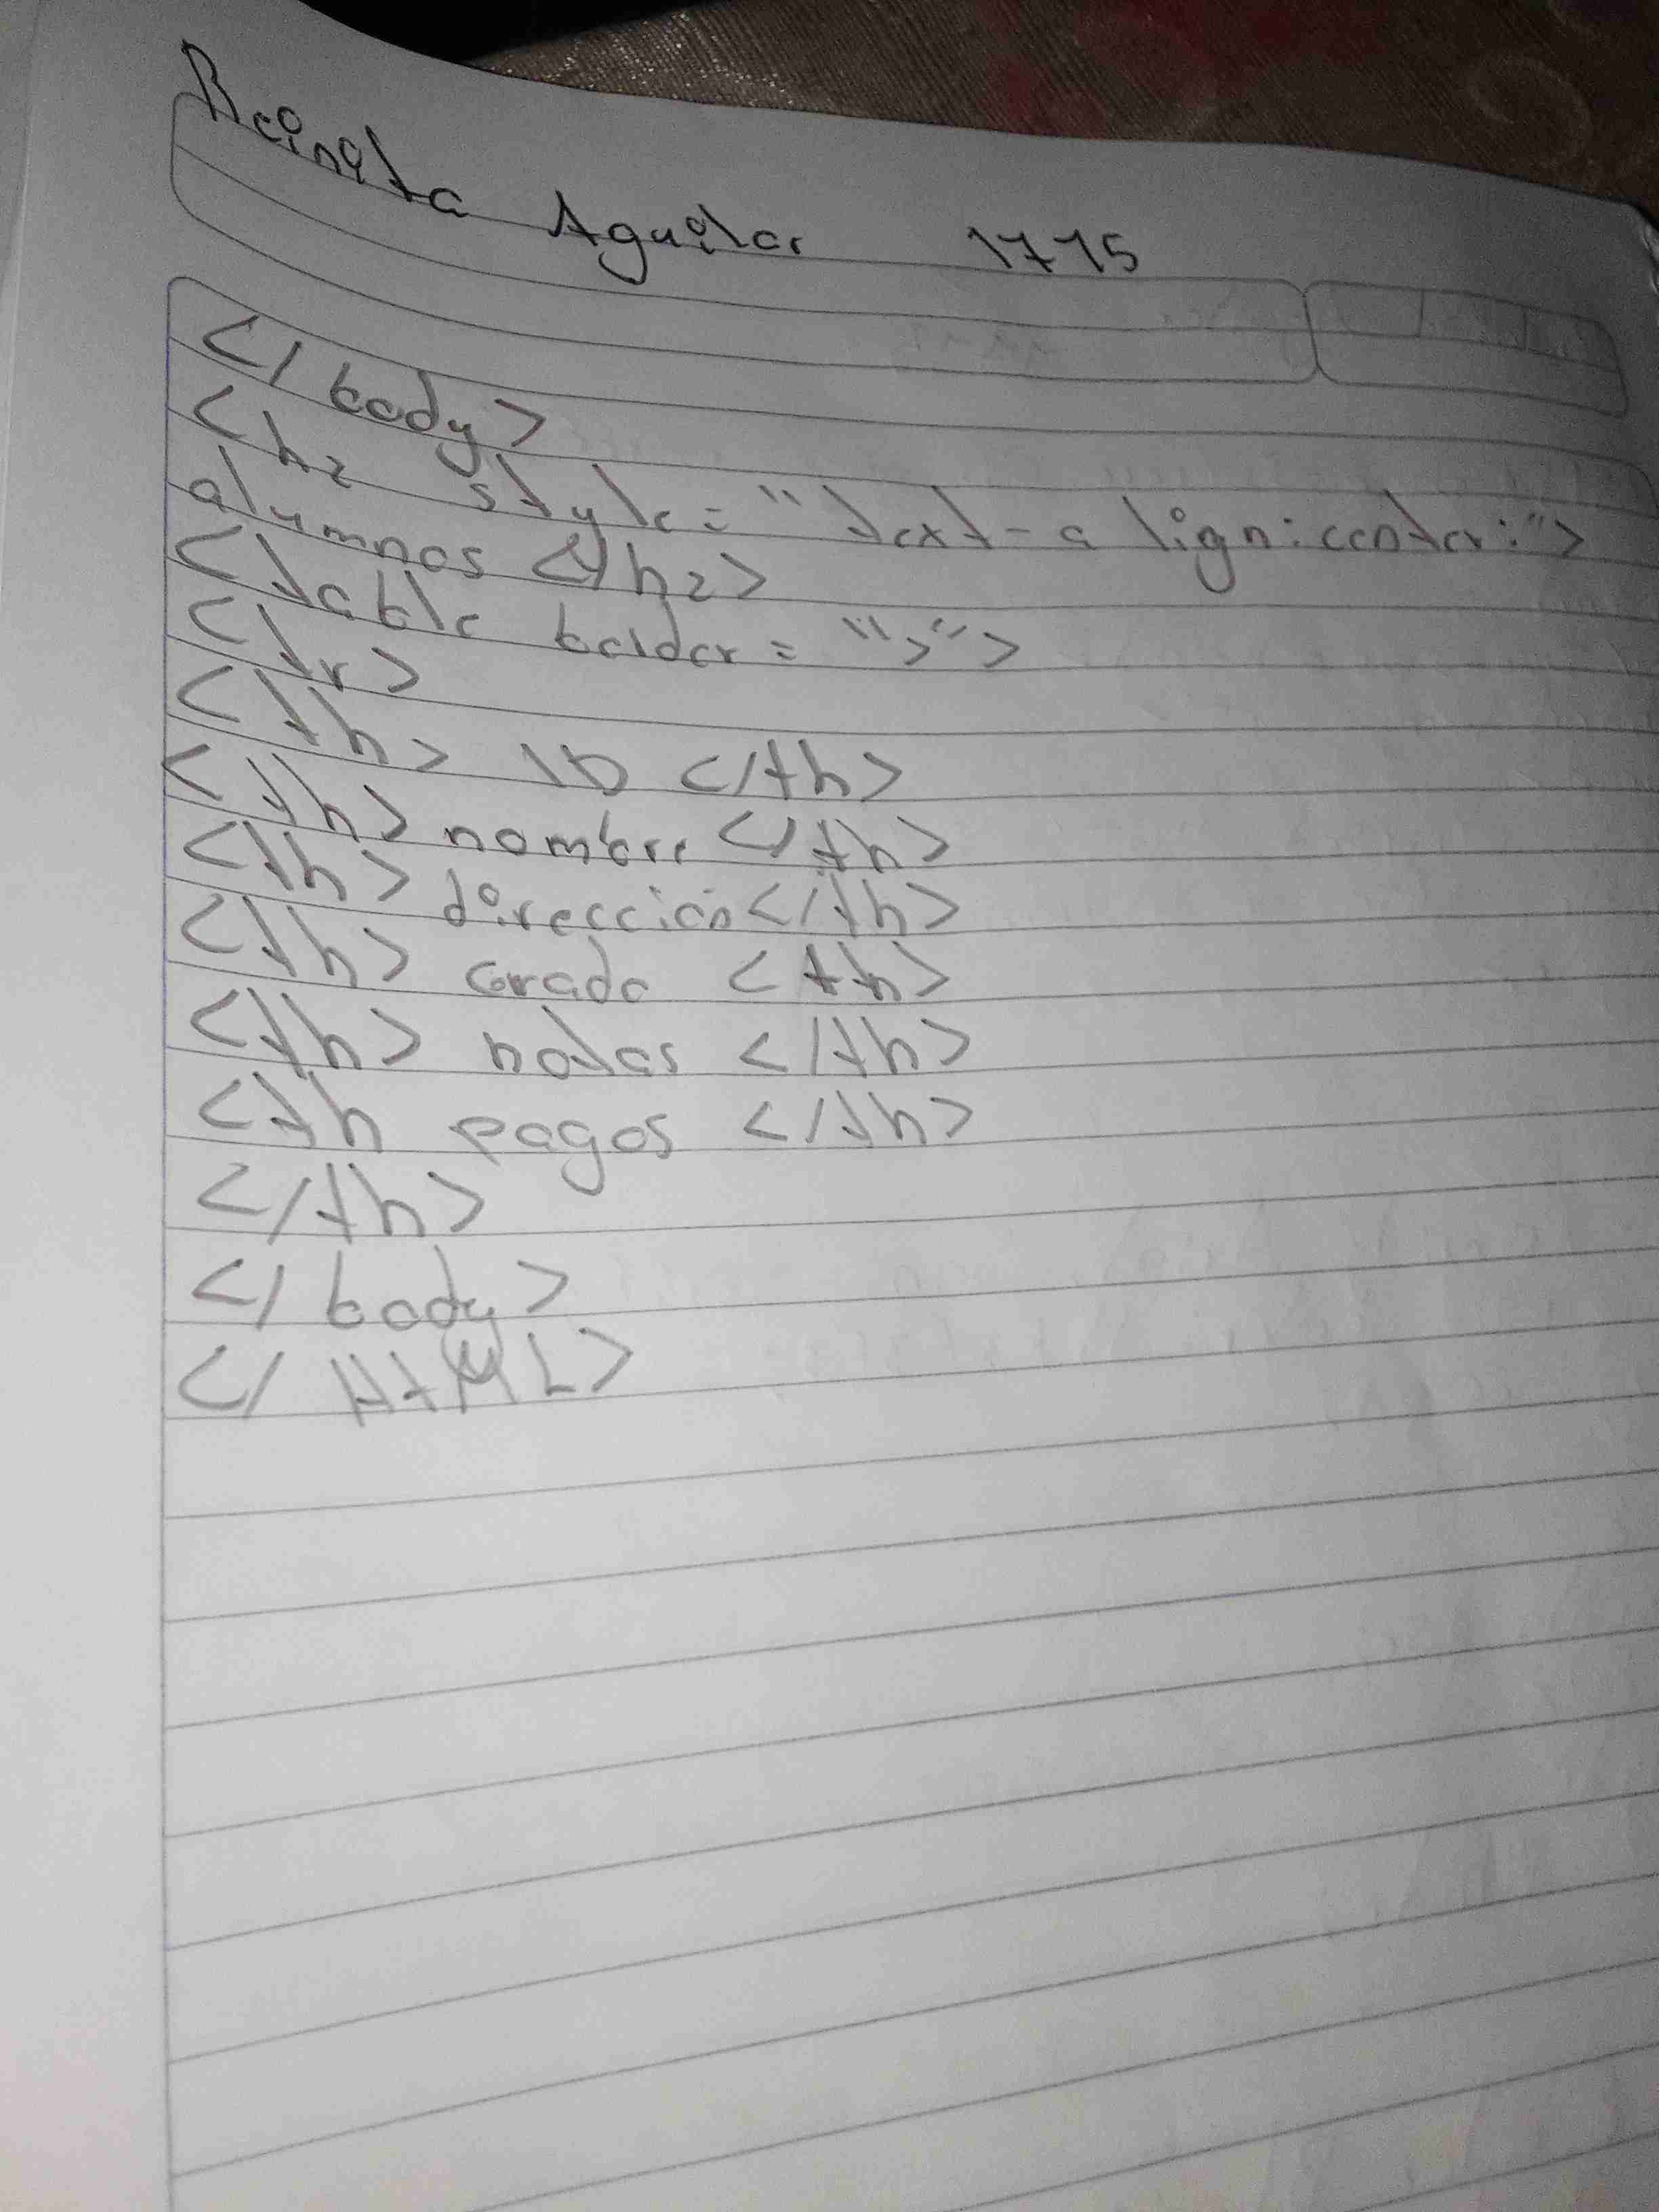 Reinita Aguilar 1775
</ body>
<h2 style = "text-a lign:center:">
alumnos </h2>
<table bolder = ">">
<tr>
<th> ID </th>
<th> nombre </th>
<th> dirección </th>
<th> Grado <th>
<th> notas </th>
<th pagos </th>
</th>
</ body>
</ HtML>